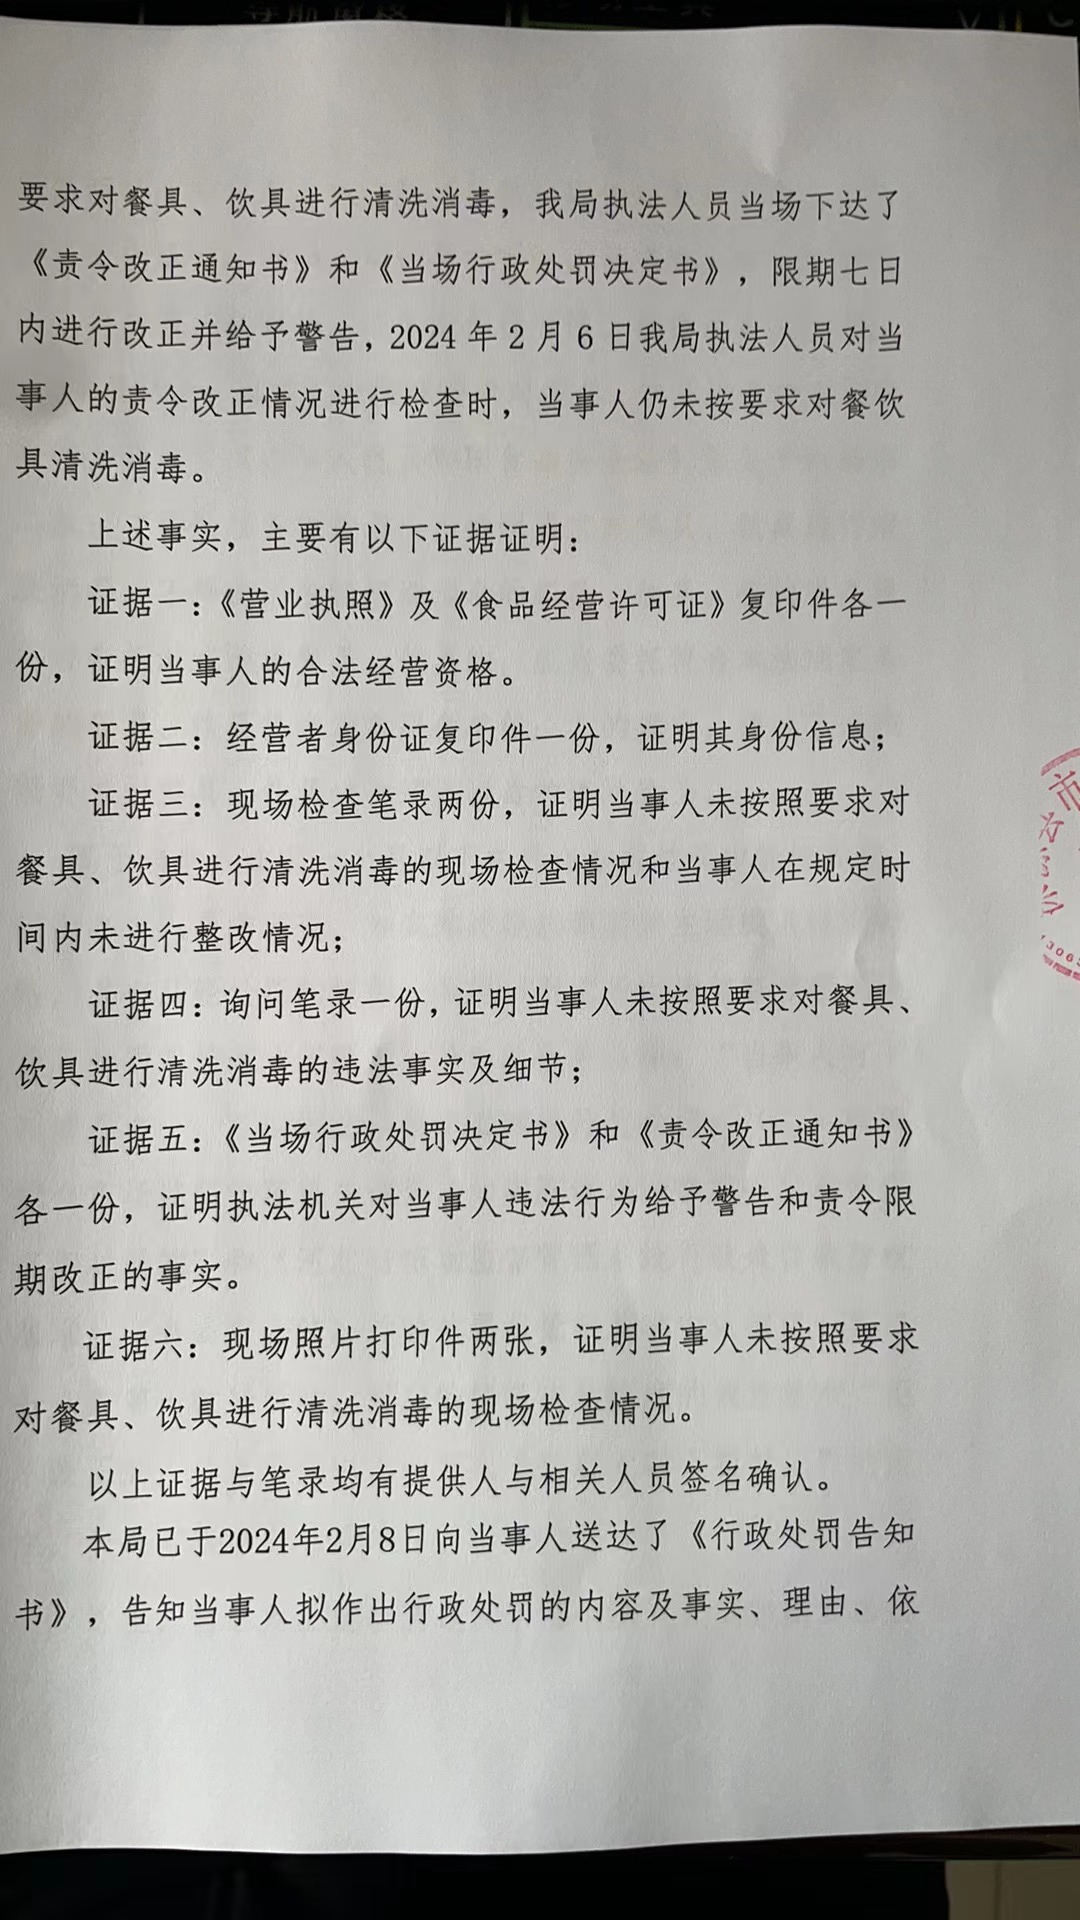 要求对餐具、饮具进行清洗消毒，我局执法人员当场下达了
《责令改正通知书》和《当场行政处罚决定书》，限期七日
内进行改正并给予警告，2024年2月6日我局执法人员对当
事人的责令改正情况进行检查时，当事人仍未按要求对餐饮
具清洗消毒。
上述事实，主要有以下证据证明：
证据一：《营业执照》及《食品经营许可证》复印件各一
份，证明当事人的合法经营资格。
证据二：经营者身份证复印件一份，证明其身份信息；
证据三：现场检查笔录两份，证明当事人未按照要求对
餐具、饮具进行清洗消毒的现场检查情况和当事人在规定时
间内未进行整改情况；
证据四：询问笔录一份，证明当事人未按照要求对餐具、
饮具进行清洗消毒的违法事实及细节；
证据五：《当场行政处罚决定书》和《责令改正通知书》
各一份，证明执法机关对当事人违法行为给予警告和责令限
期改正的事实。
证据六：现场照片打印件两张，证明当事人未按照要求
对餐具、饮具进行清洗消毒的现场检查情况。
以上证据与笔录均有提供人与相关人员签名确认。
本局已于2024年2月8日向当事人送达了《行政处罚告知
书》，告知当事人拟作出行政处罚的内容及事实、理由、依
市